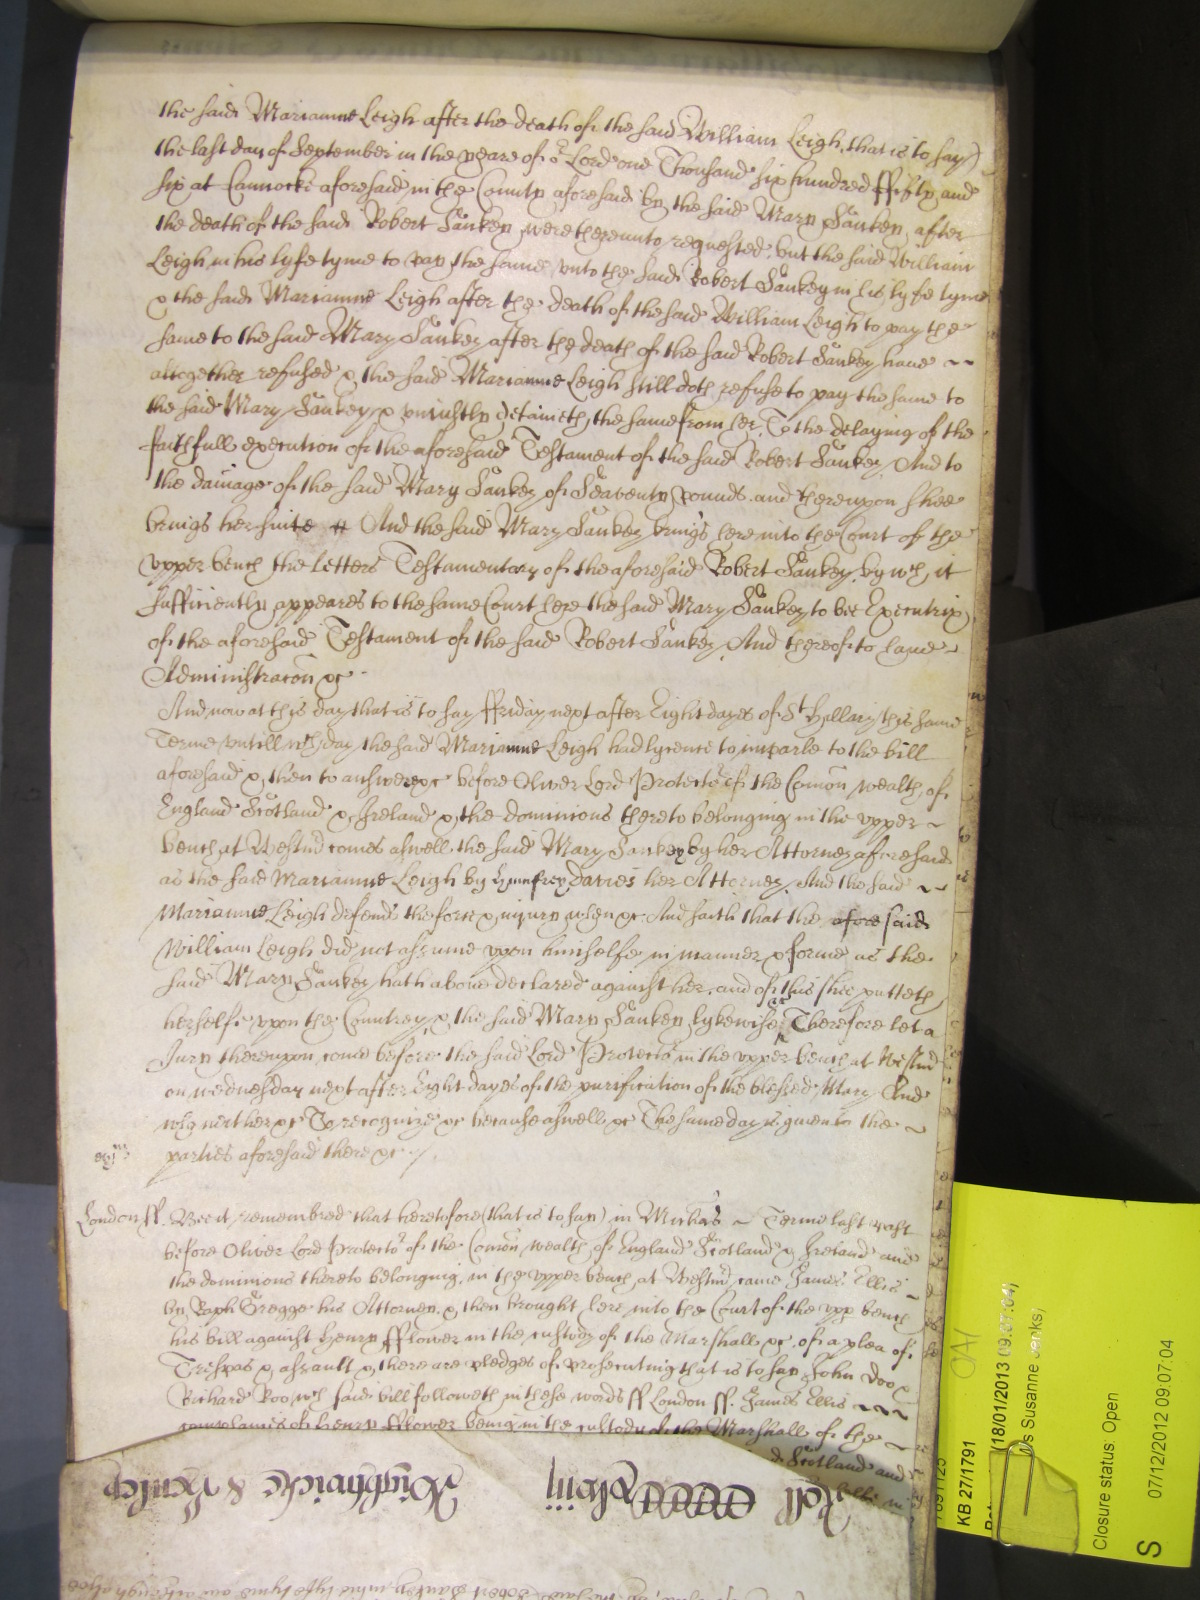 the said Marianne Leigh after the death of the said William Leigh, that is to say)
the last day of September in the yeare of or Lord one Thousand six hundred ffifty and
six at Cannocke aforesaid in the County aforesaid by the said Mary Sankey, after
the death of the said Robert Sankey were thereunto requested, but the said William
Leigh in his lyfe tyme to pay the same unto the said Robert Sankey in his lyfe tyme
& the said Marianne Leigh after the death of the said William Leigh to pay the
same to the said Mary Sankey after the death of the said Robert Sankey have
altogether refused & the said Marianne Leigh still doth refuse to pay the same to
the said Mary Sankey & uniustly detaineth the same from her, To the delaying of the
faithfull execution of the aforesaid Testament of the said Robert Sankey And to
the damage of the said Mary Sankey of Seaventy pounds and thereupon shee
brings her suite And the said Mary Sankey brings here into the Court of the
upper bench the Letters Testamentary of the aforesaid Robert Sankey, by wch it
sufficiently appeares to the same Court here the said Mary Sankey to bee Executrix
of the aforesaid Testament of the said Robert Sankey, And thereof to have
Administracon &c
And now at this day that is to say ffriday next after Eight dayes of St Hillary this same
Terme untill wch day the said Marianne Leigh had lycence to imparle to the bill
aforesaid & then to answere &c before Oliver Lord Protector of the Comon wealth of
England Scotland & Ireland & the dominions thereto belonging in the upper
bench at Westmr comes aswell the said Mary Sankey by her Attorney aforesaid
as the said Marianne Leigh by Humfrey Davies her Attorney, And the said
Marianne Leigh defends the force & injury when &c And saith that the aforesaid
William Leigh did not assume upon himselfe in manner & forme as the
said Mary Sankey hath above declared against her, and of this shee putteth
herselfe upon the Countrey, & the said Mary Sankey lykewise &c Therefore let a
Jury thereupon come before the said Lord Protector in the upper bench at Westmr
on wednesday next after Eight dayes of the purification of the blessed Mary And
who neither &c To recognize &c because aswell &c The same day is given to the
parties aforesaid there &c
London ss. Bee it remembred that heretofore (that is to say) in Michas Terme last past
before Oliver Lord Protector of the Comon wealth of England Scotland & Ireland and
the dominions thereto belonging, in the upper bench at Westmr came James Ellis
by Raph Gregge his Attorney, & then brought here into the Court of the upp bench
his bill against Henry fflower in the custody of the Marshall &c. of a plea of
Trespas & assault & there are pledges of prosecuting that is to say John Doo &
Richard Roo wch said bill followeth in these words ss London ss. James Ellis
complaines of Henry fflower being in the custody of the Marshall of the
Scotland and
Roll
KB 27/1791
(18/01/2013 09:37:04)
Ms Susanne Jenks)
Closure status: Open
S
07/12/2012 09:07:04